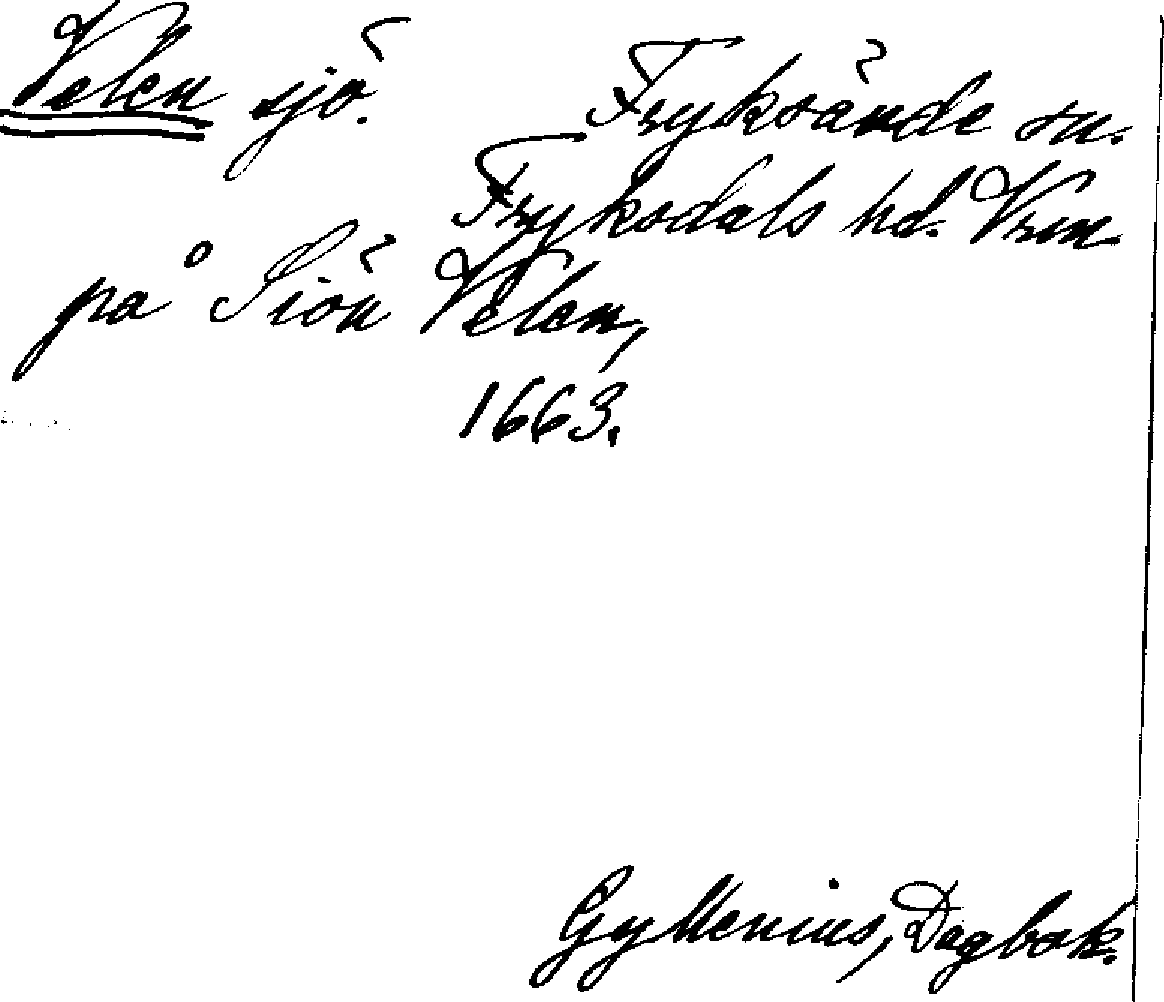 Velen sjö. Fryksände sn.
Fryksdals hd. Vrm.
på Siön Velen,
1663.
Gyllenius, Dagbok.